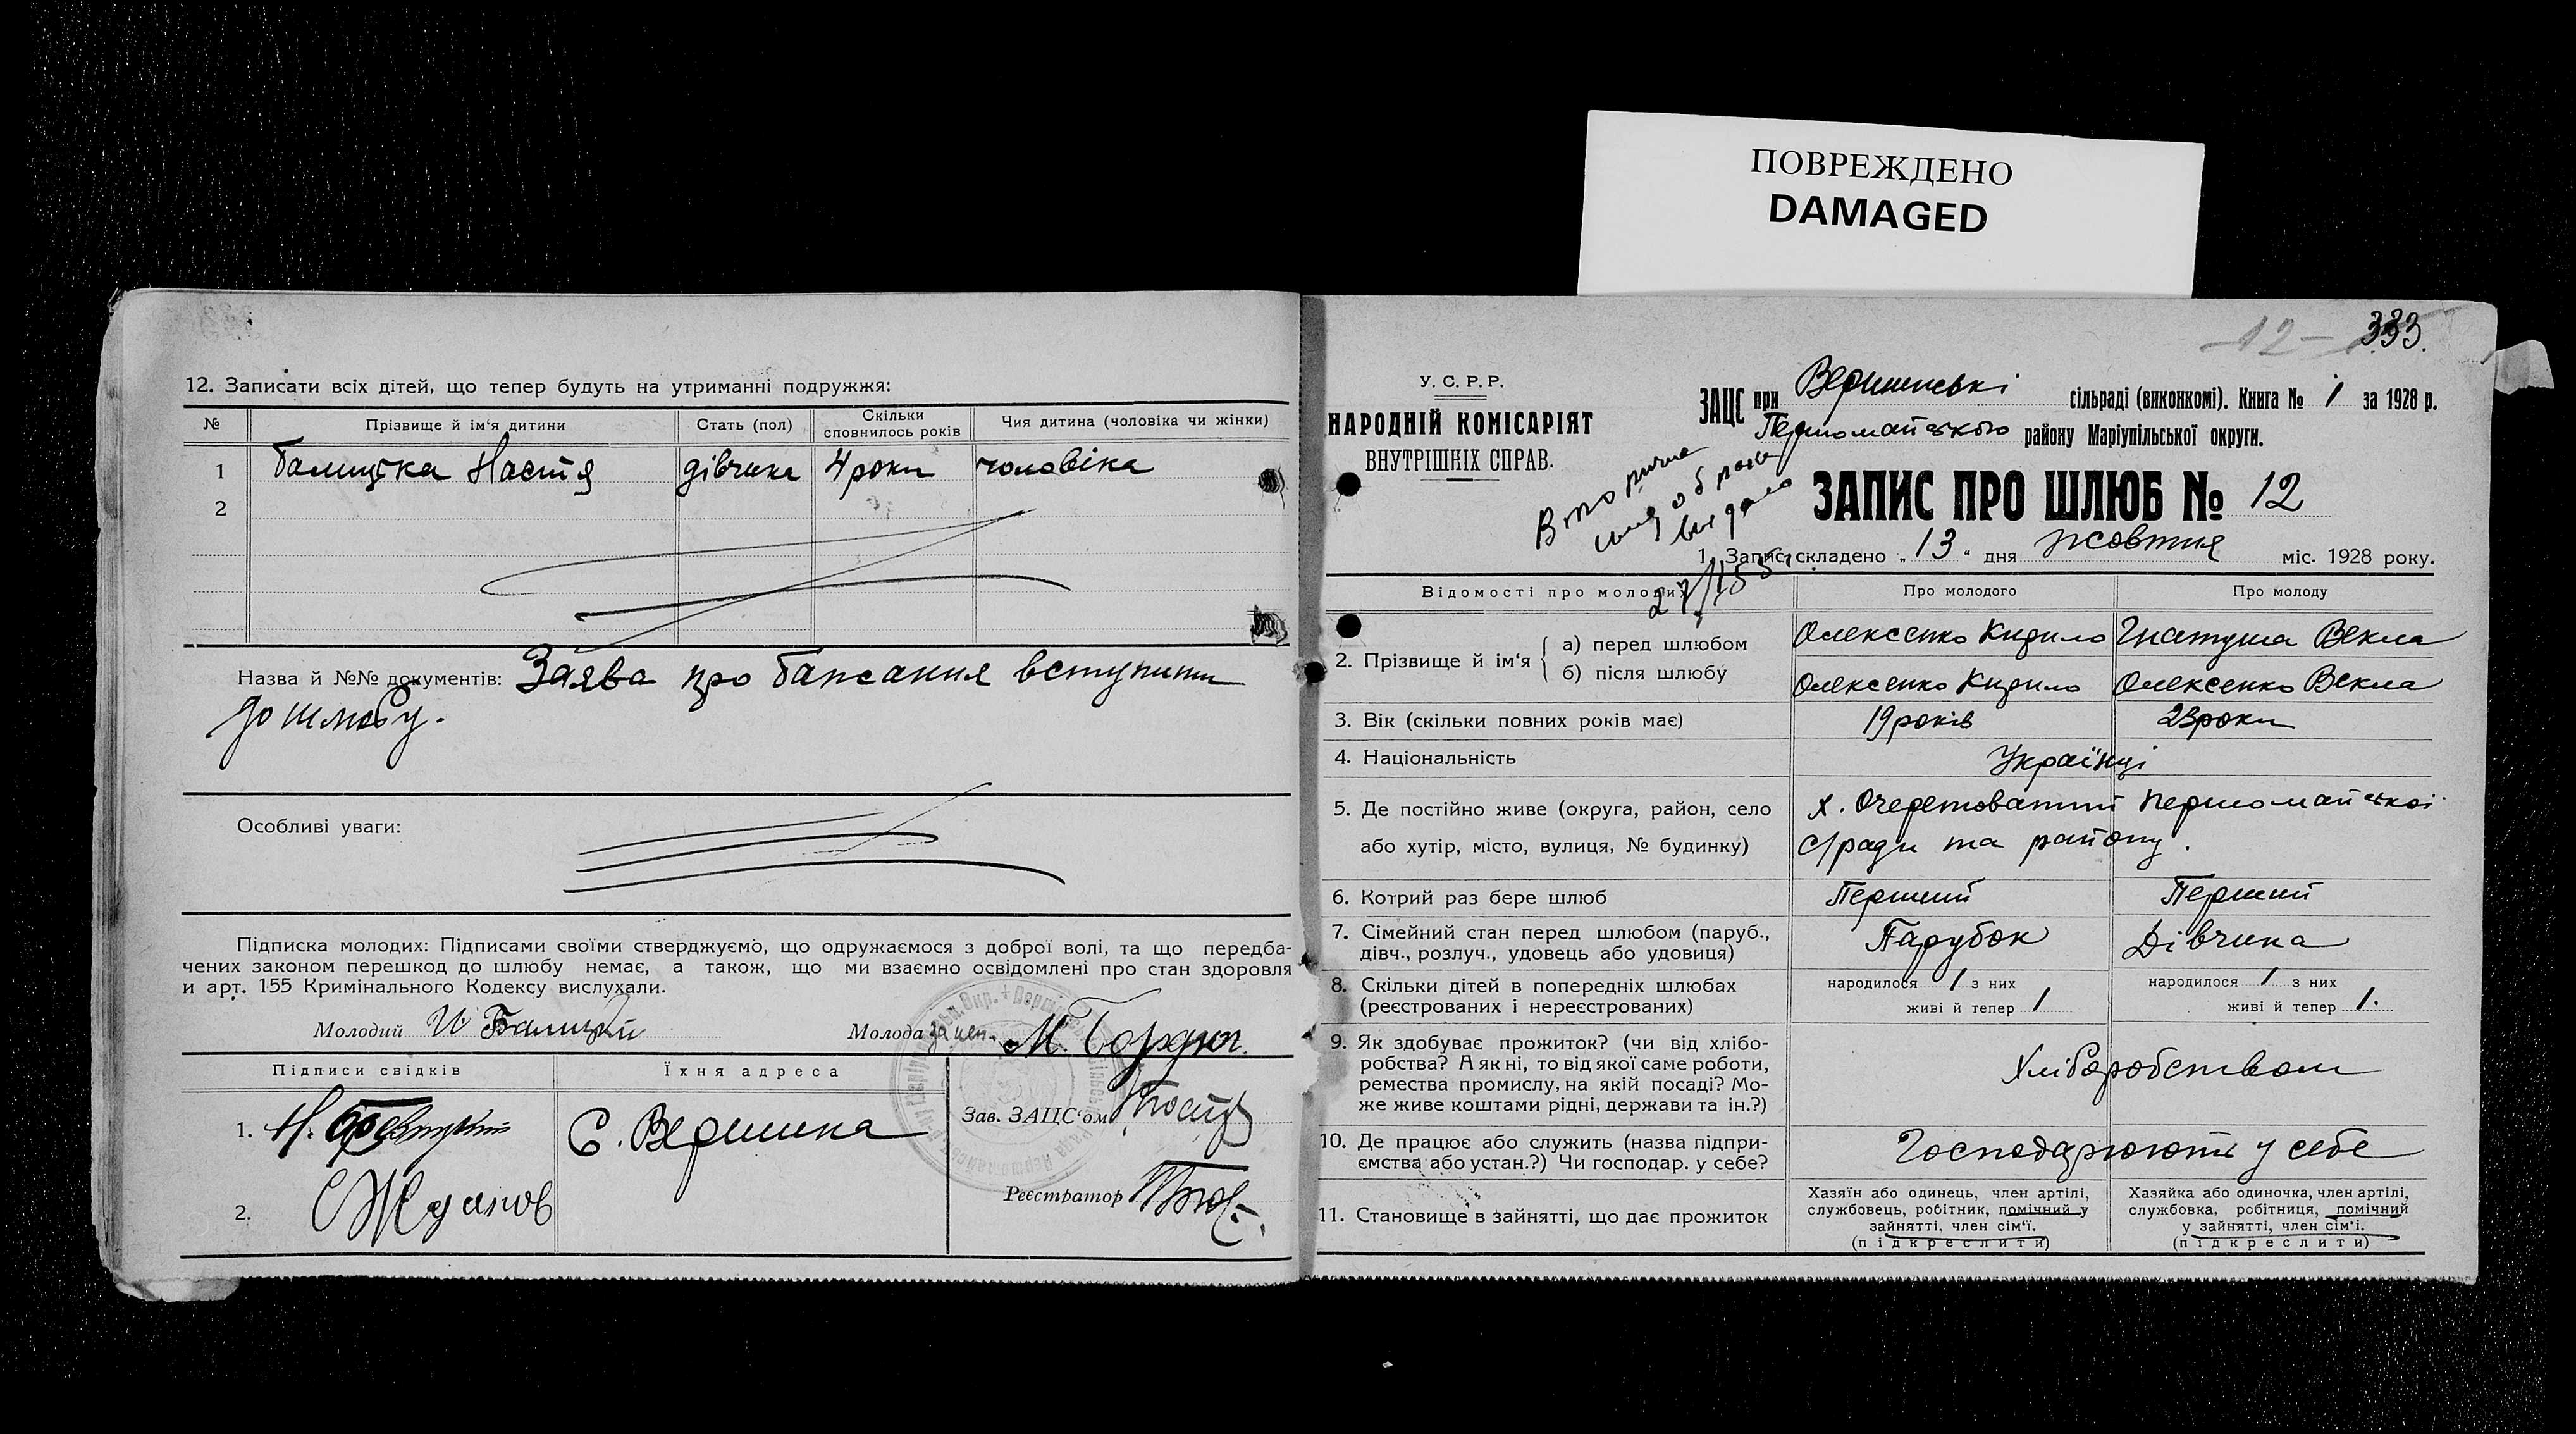 ПОВРЕЖДЕНО
DAMAGED
12. Записати всіх дітей, що тепер будуть на утриманні подружжя:
№ Прізвище й ім'я дитини Стать (пол) Скільки сповнилось років Чия дитина (чоловіка чи жінки)
1 Балицька Настя дівчина 4 роки чоловіка
2
Назва й №№ документів: Заява про бажання вступити
до шлюбу.
Особливі уваги:
Підписка молодих: Підписами своїми стверджуємо, що одружаємося з доброї волі, та що передба-
чених законом перешкод до шлюбу немає, а також, що ми взаємно освідомлені про стан здоровля
и арт. 155 Кримінального Кодексу вислухали.
Молодий И Балицкий Молода за неп. М. Бордюг.
Підписи свідків Їхня адреса
1. Н. С. Вершина
Зав. ЗАЦС'ом
2. Жданов
Реєстратор
333.
12
У. С. Р. Р.
НАРОДНІЙ КОМІСАРІЯТ
ВНУТРІШНІХ СПРАВ.
ЗАЦС при Вершинські сільраді (виконкомі). Книга № 1 за 1928 р.
Першомайського району Маріупільської округи.
Вторичне
свид о браке
выдано
27/I 55
ЗАПИС ПРО ШЛЮБ № 12
1. Запис складено „13“ дня жовтня міс. 1928 року.
Відомості про молодих Про молодого Про молоду
2. Прізвище й ім'я а) перед шлюбом Олексенко Кирило Гнатуша Векла
б) після шлюбу Олексенко Кирило Олексенко Векла
3. Вік (скільки повних років має) 19 років 23 роки
4. Національність Українці
5. Де постійно живе (округа, район, село х. Очеретоватий Першомайської
або хутір, місто, вулиця, № будинку) с/ради та району.
6. Котрий раз бере шлюб Перший Перший
7. Сімейний стан перед шлюбом (паруб.,
дівч., розлуч., удовець або удовиця) Парубок Дівчина
8. Скільки дітей в попередніх шлюбах народилося 1 з них народилося 1 з них
(реєстрованих і нереєстрованих) живі й тепер 1 живі й тепер 1.
9. Як здобуває прожиток? (чи від хлібо-
робства? А як ні, то від якої саме роботи,
ремества промислу, на якій посаді? Мо-
же живе коштами рідні, держави та ін.?) Хліборобством
10. Де працює або служить (назва підпри-
ємства або устан.?) Чи господар. у себе? Господарюють у себе
11. Становище в зайнятті, що дає прожиток
Хазяїн або одинець, член артілі,
службовець, робітник, помічний у
зайнятті, член сім'ї.
(підкреслити)
Хазяйка або одиночка, член артілі,
службовка, робітниця, помічний
у зайнятті, член сім'ї.
(підкреслити)